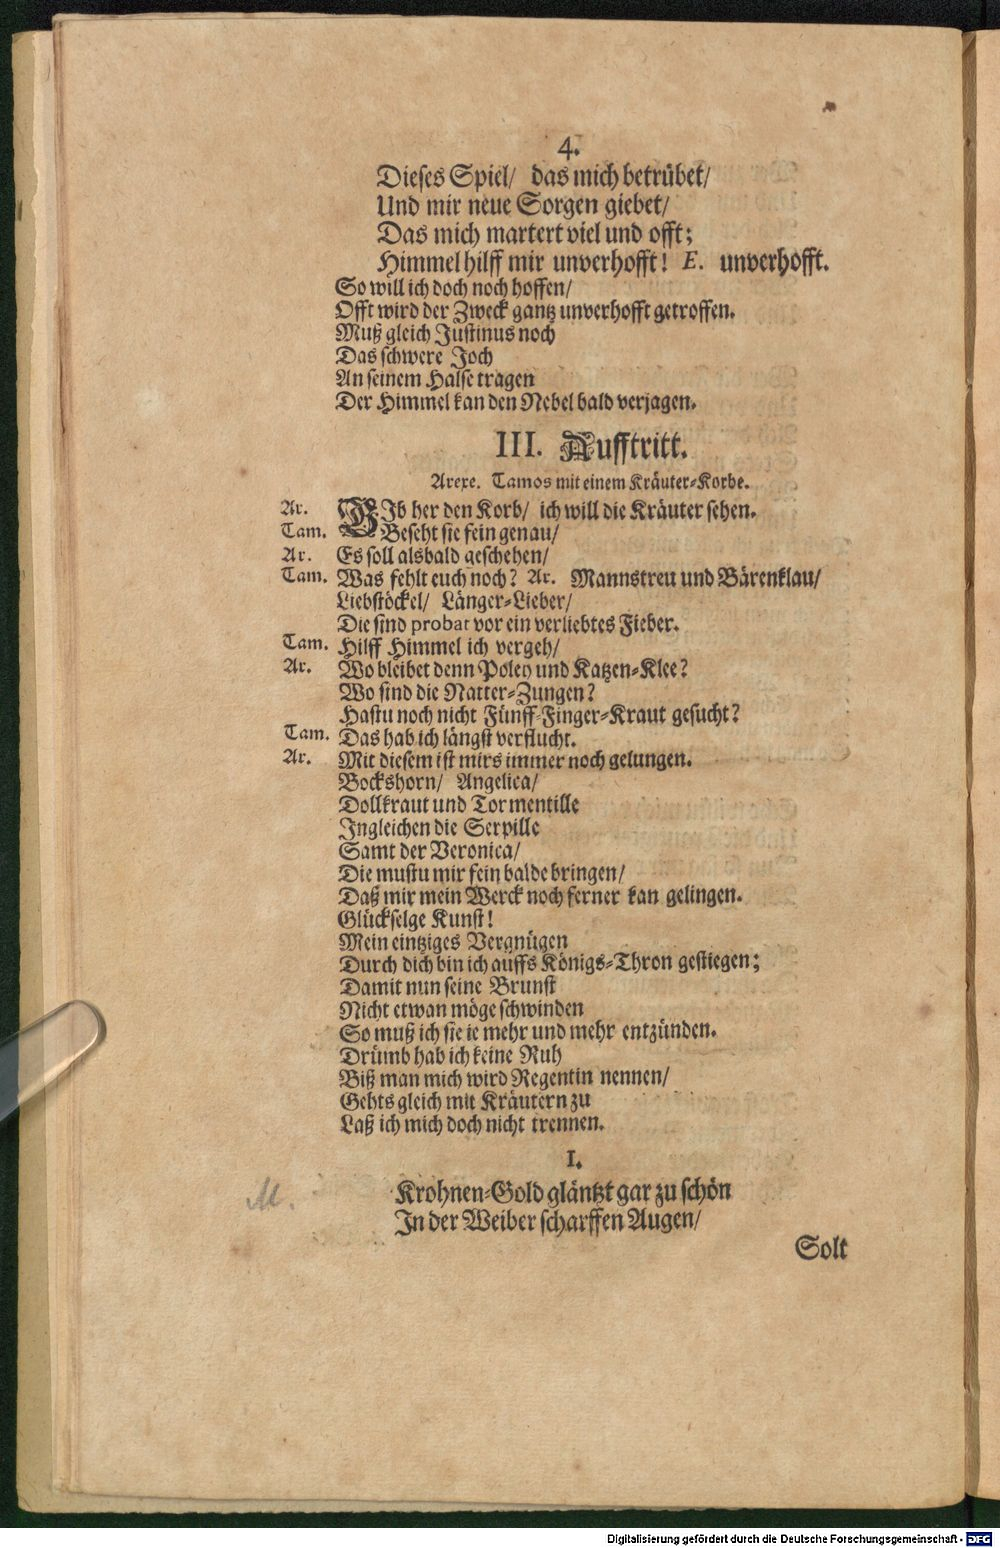 4.
Dieses Spiel/ das mich betrübet/
Und mir neue Sorgen giebet/
Das mich martert viel und offt;
Himmel hilff mir unverhofft! E. unverhofft.
So will ich doch noch hoffen/
Offt wird der Zweck gantz unverhofft getroffen.
Muß gleich Justinus noch
Das schwere Joch
An seinem Halse tragen
Der Himmel kan den Nebel bald verjagen.
III. Aufftritt.
Arexe. Tamos mit einem Kräuter-Korbe.
Ar. GIb her den Korb/ ich will die Kräuter sehen.
Tam. Beseht sie fein genau/
Ar. Es soll alsbald geschehen/
Tam. Was fehlt euch noch? Ar. Mannstreu und Bärenklau/
Liebstöckel/ Länger-Lieber/
Die sind probat vor ein verliebtes Fieber.
Tam. Hilff Himmel ich vergeh/
Ar. Wo bleibet denn Poley und Katzen-Klee?
Wo sind die Natter-Zungen?
Hastu noch nicht Fünff-Finger-Kraut gesucht?
Tam. Das hab ich längst verflucht.
Ar. Mit diesem ist mirs immer noch gelungen.
Bockshorn/ Angelica/
Dollkraut und Tormentille
Ingleichen die Serpille
Samt der Veronica/
Die mustu mir fein balde bringen/
Daß mir mein Werck noch ferner kan gelingen.
Glückselge Kunst!
Mein eintziges Vergnügen
Durch dich bin ich auffs Königs-Thron gestiegen;
Damit nun seine Brunst
Nicht etwan möge schwinden
So muß ich sie ie mehr und mehr entzünden.
Drümb hab ich keine Ruh
Biß man mich wird Regentin nennen/
Gehts gleich mit Kräutern zu
Laß ich mich doch nicht trennen.
I.
Krohnen-Gold gläntzt gar zu schön
In der Weiber scharffen Augen/
M.
Solt
Digitalisierung gefördert durch die Deutsche Forschungsgemeinschaft - DFG